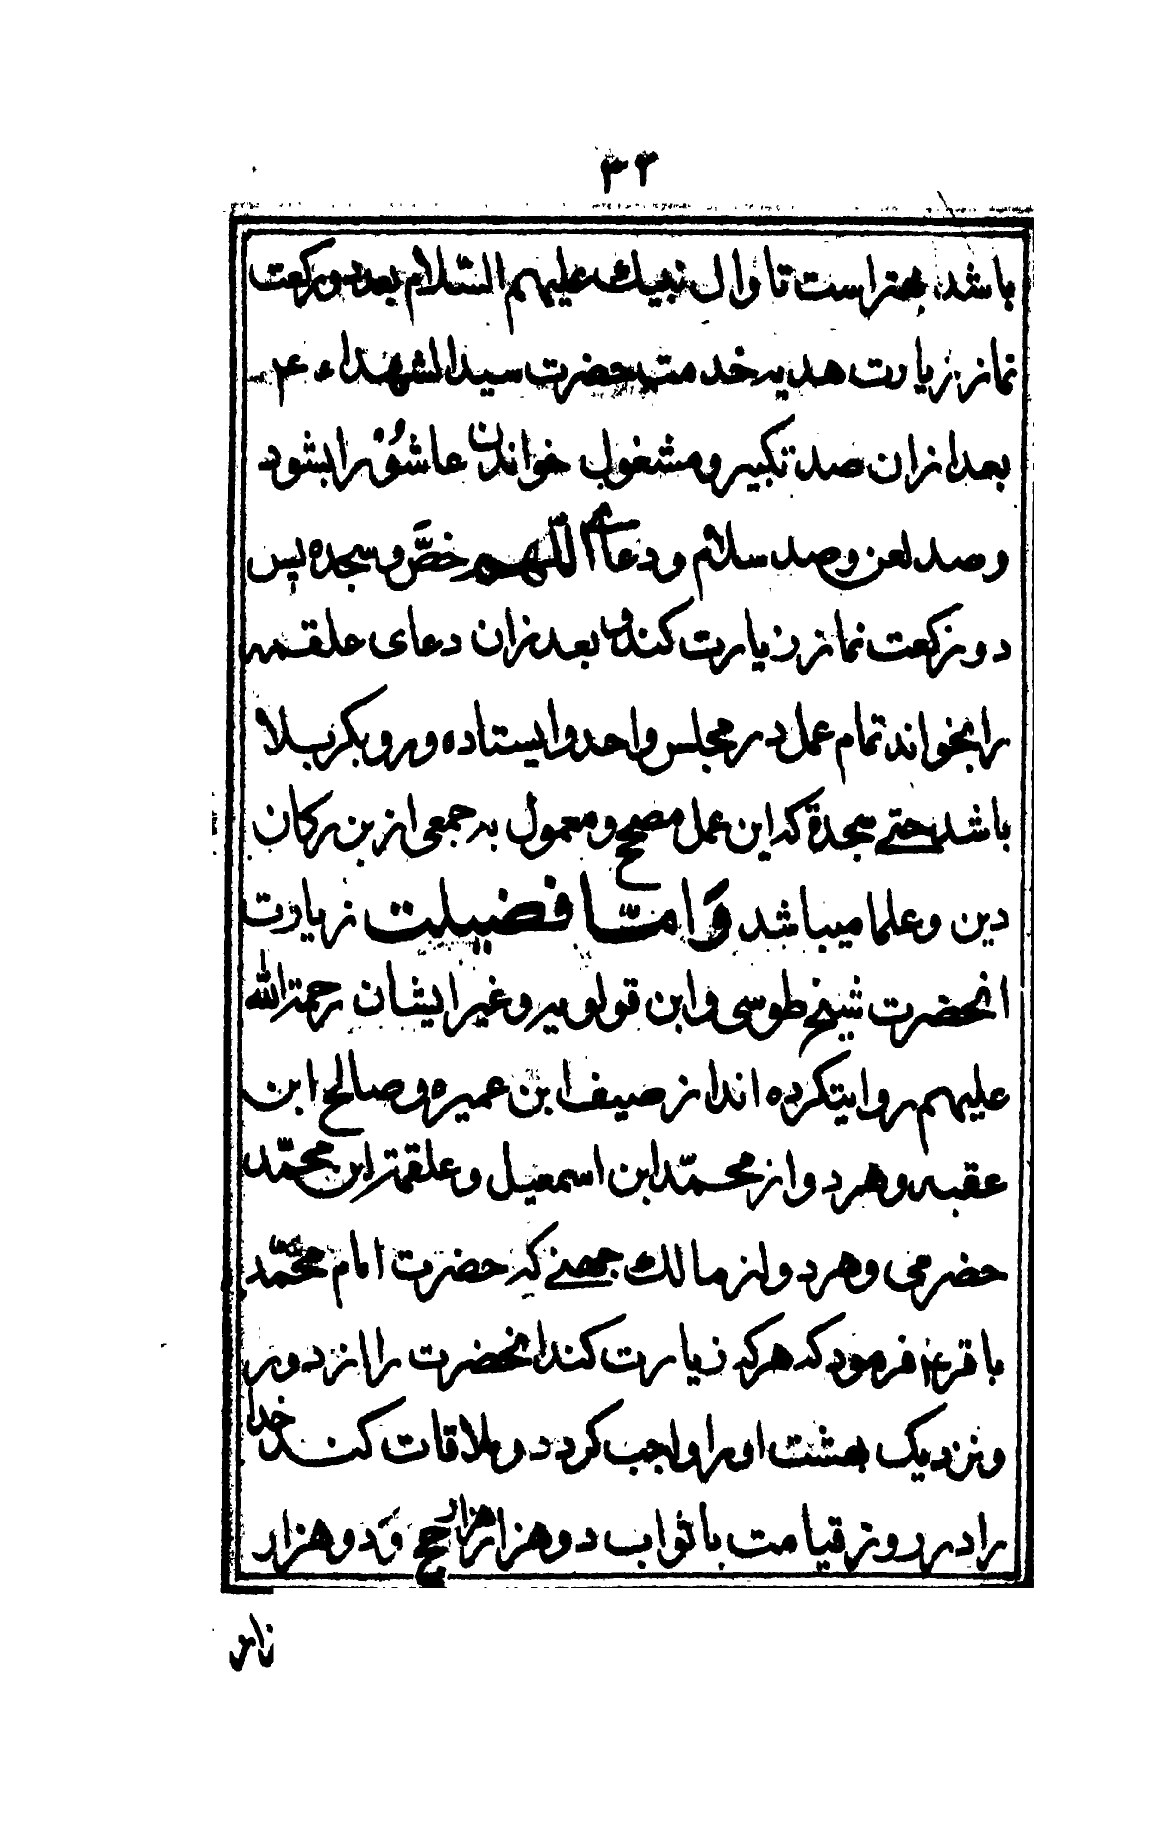 ۳۳
باشد بهتر است تا وال نبیك علیهم السّلام بعد دو رکعت
نماز زیارت هدیه خدمت حضرت سید الشهداء ع م
بعد ازان صد تکبیر و مشغول خواندن عاشوُر را بشود
و صد لعن و صد سلام و دعاے اللّهم خصَّ و سجده پس
دو رکعت نماز زیارت کند و بعد زان دعای علقمه
را بخواند تمام عمل در مجلس واحد و ایستاده و رو بکربلا
باشد حتے سجدة که این عمل مصحح و معمول به جمعی از بزرکان
دین و علما میباشد وَ امّا فضیلت زیارت
انحضرت شیخ طوسی و ابن قولویه و غیر ایشان رحمة الله
علیهم روایتکرده اند از صیف ابن عمیره و صالح ابن
عقبه و هر دو از محمّد ابن اسمعیل و علقمة ابن محمّد
حضرمی و هر دو از مالك جهنے که حضرت امام محمّد
باقر ع م فرمود که هر که زیارت کند انحضرت را از دور
و نزدیک بهشت او را واجب کردد و ملاقات کند خدا
را در روز قیامت با ثواب دو هزار هزار حج وَ دو هزار